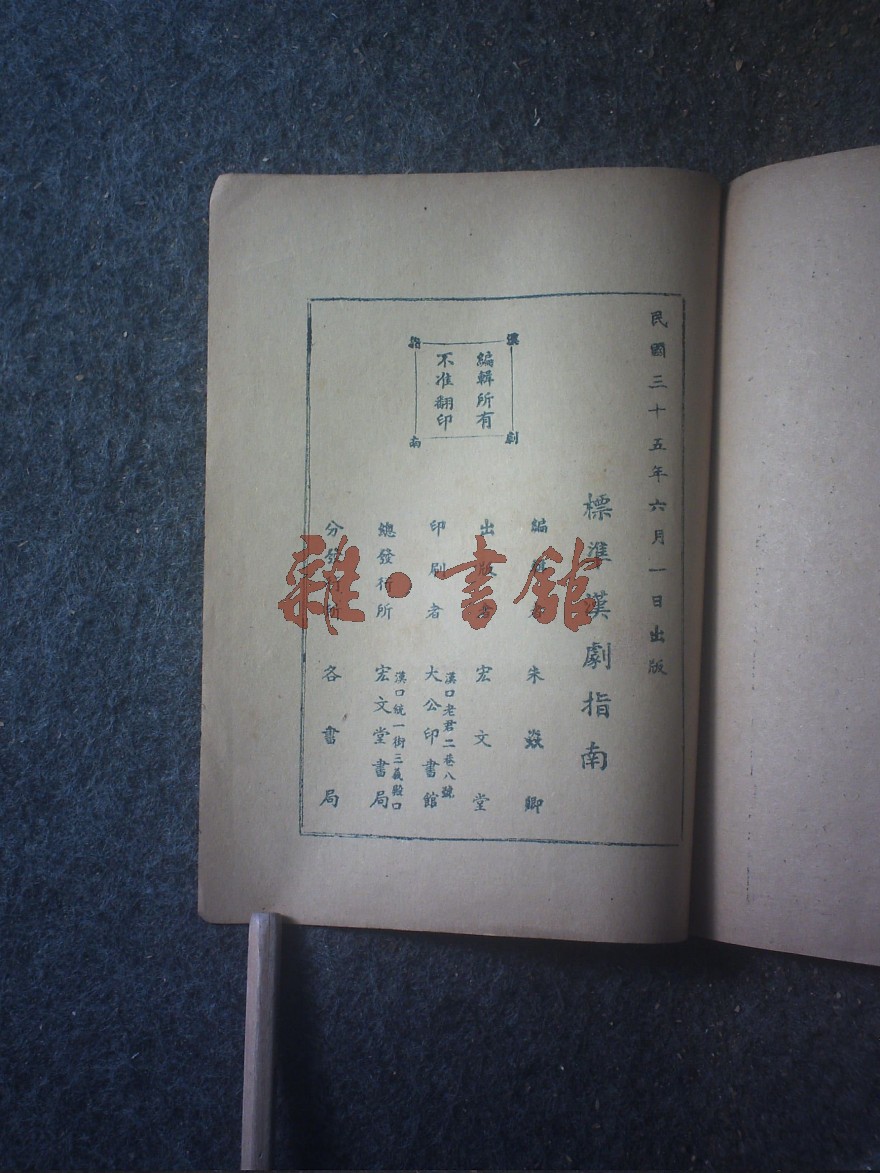 民國三十五年六月一日出版
標準漢劇指南
漢劇指南
編輯所有
不准翻印
編輯者 朱焱卿
出版者 宏文堂
漢口老君二巷八號
印刷者 大公印書館
漢口統一街三義殿口
總發行所 宏文堂書局
分發行所 各書局
雜·書館